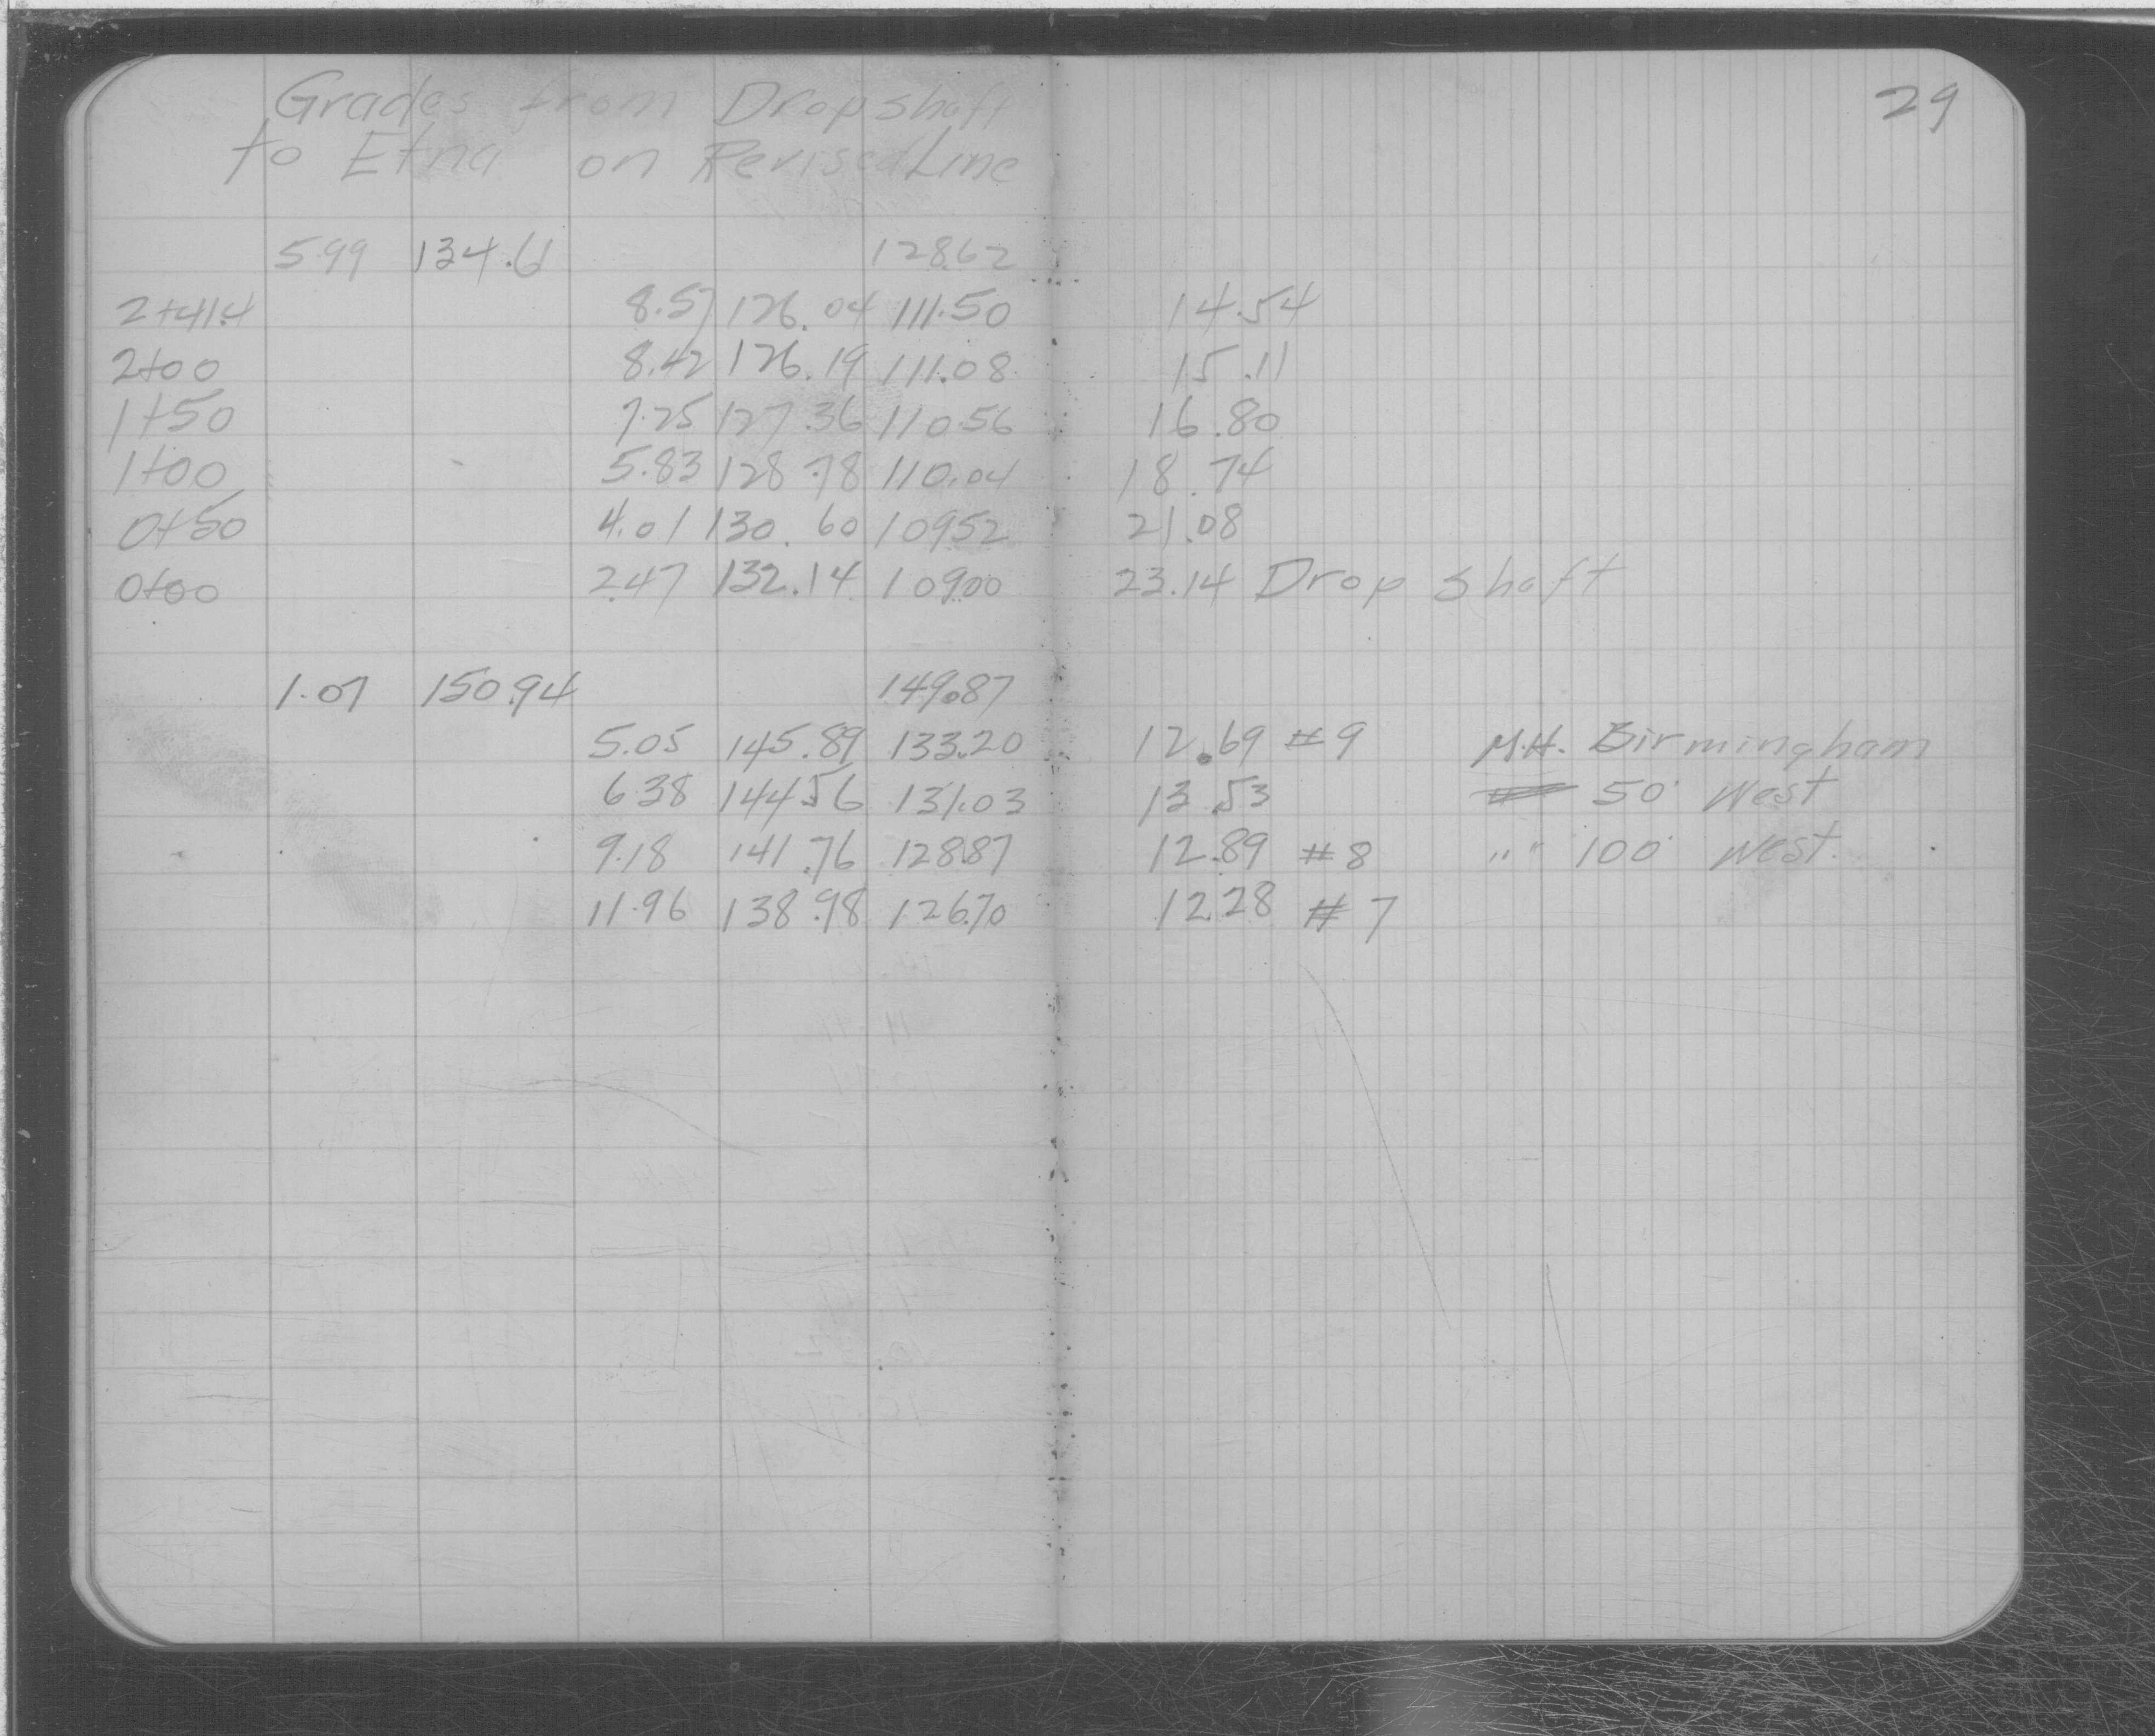 29
Grades from Dropshaft
to Etna on Revised Line
5.99 134.61 128.62
2+41.4 8.57 126.04 111.50 14.54
2+00 8.42 126.19 111.08 15.11
1+50 7.25 127.36 110.56 16.80
1+00 5.83 128.78 110.04 18.74
0+50 4.01 130.60 109.52 21.08
0+00 2.47 132.14 109.00 23.14 Drop shaft
1.07 150.94 149.87
5.05 145.89 133.20 12.69 #9 M.H. Birmingham
6.38 144.56 131.03 13.53 50' West
9.18 141.76 128.87 12.89 #8 " " 100' West.
11.96 138.98 126.70 12.28 #7